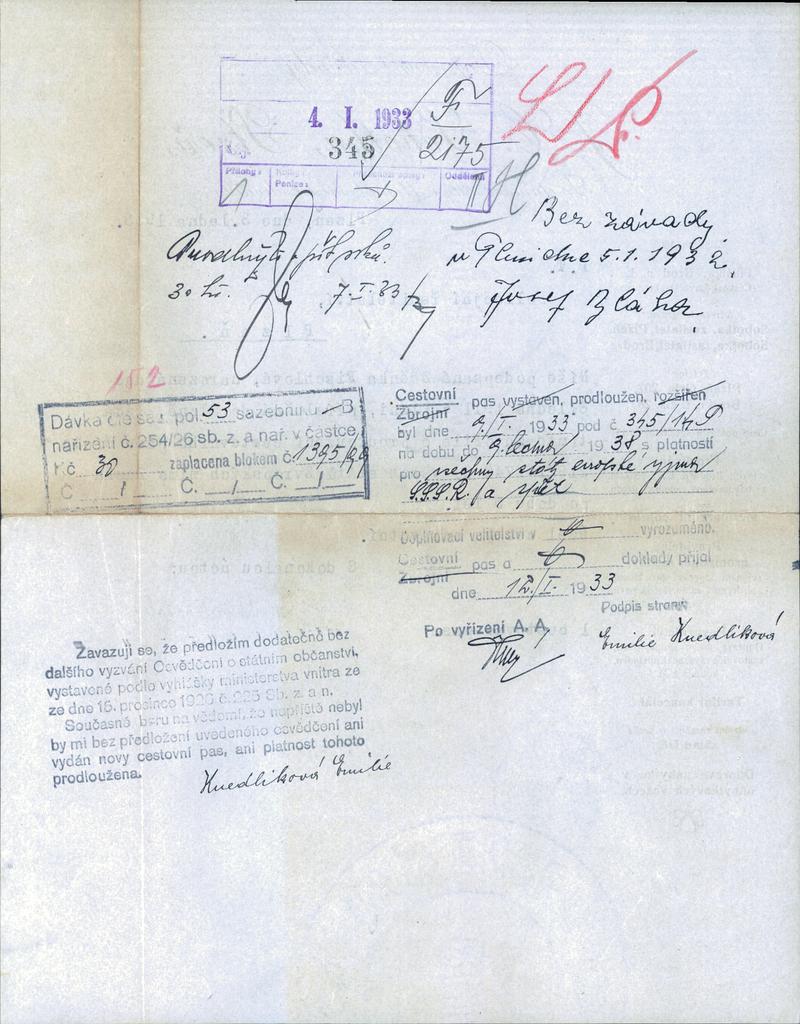 4. I. 1933
345
2175
Přílohy: Kolky: Peníze: Oddělení
1 II
H
Bez závady
v Plzni dne 5.1.1932.
Josef Bláha
30 kč. 7.I.33
152
Dávka dle saz. pol. 53 sazebníku A B
nařízení č. 254/26 sb. z. a nař. v částce
Kč 30 zaplacena blokem č. 1395/99
Č. / Č. / Č. /
Cestovní pas vystaven, prodloužen, rozšířen
Zbrojní
byl dne 9/I. 1933 pod č. 345/14P
na dobu do 9. ledna 1938 s platností
pro všechny státy evropské vyjma
S.S.S.R. a zpět
Doplňovací velitelství v vyrozuměno.
Cestovní pas a doklady přijal
Zbrojní
dne 12/I. 1933
Podpis strany
Po vyřízení A. A.
Emilie Knedlíková
Zavazuji se, že předložím dodatečně bez
dalšího vyzvání Osvědčení o státním občanství,
vystavené podle vyhlášky ministerstva vnitra ze
ze dne 15. prosince 1926 č. 225 Sb. z. a n.
Současně beru na vědomí, že napříště nebyl
by mi bez předložení uvedeného osvědčení ani
vydán nový cestovní pas, ani platnost tohoto
prodloužena.
Knedlíková Emilie